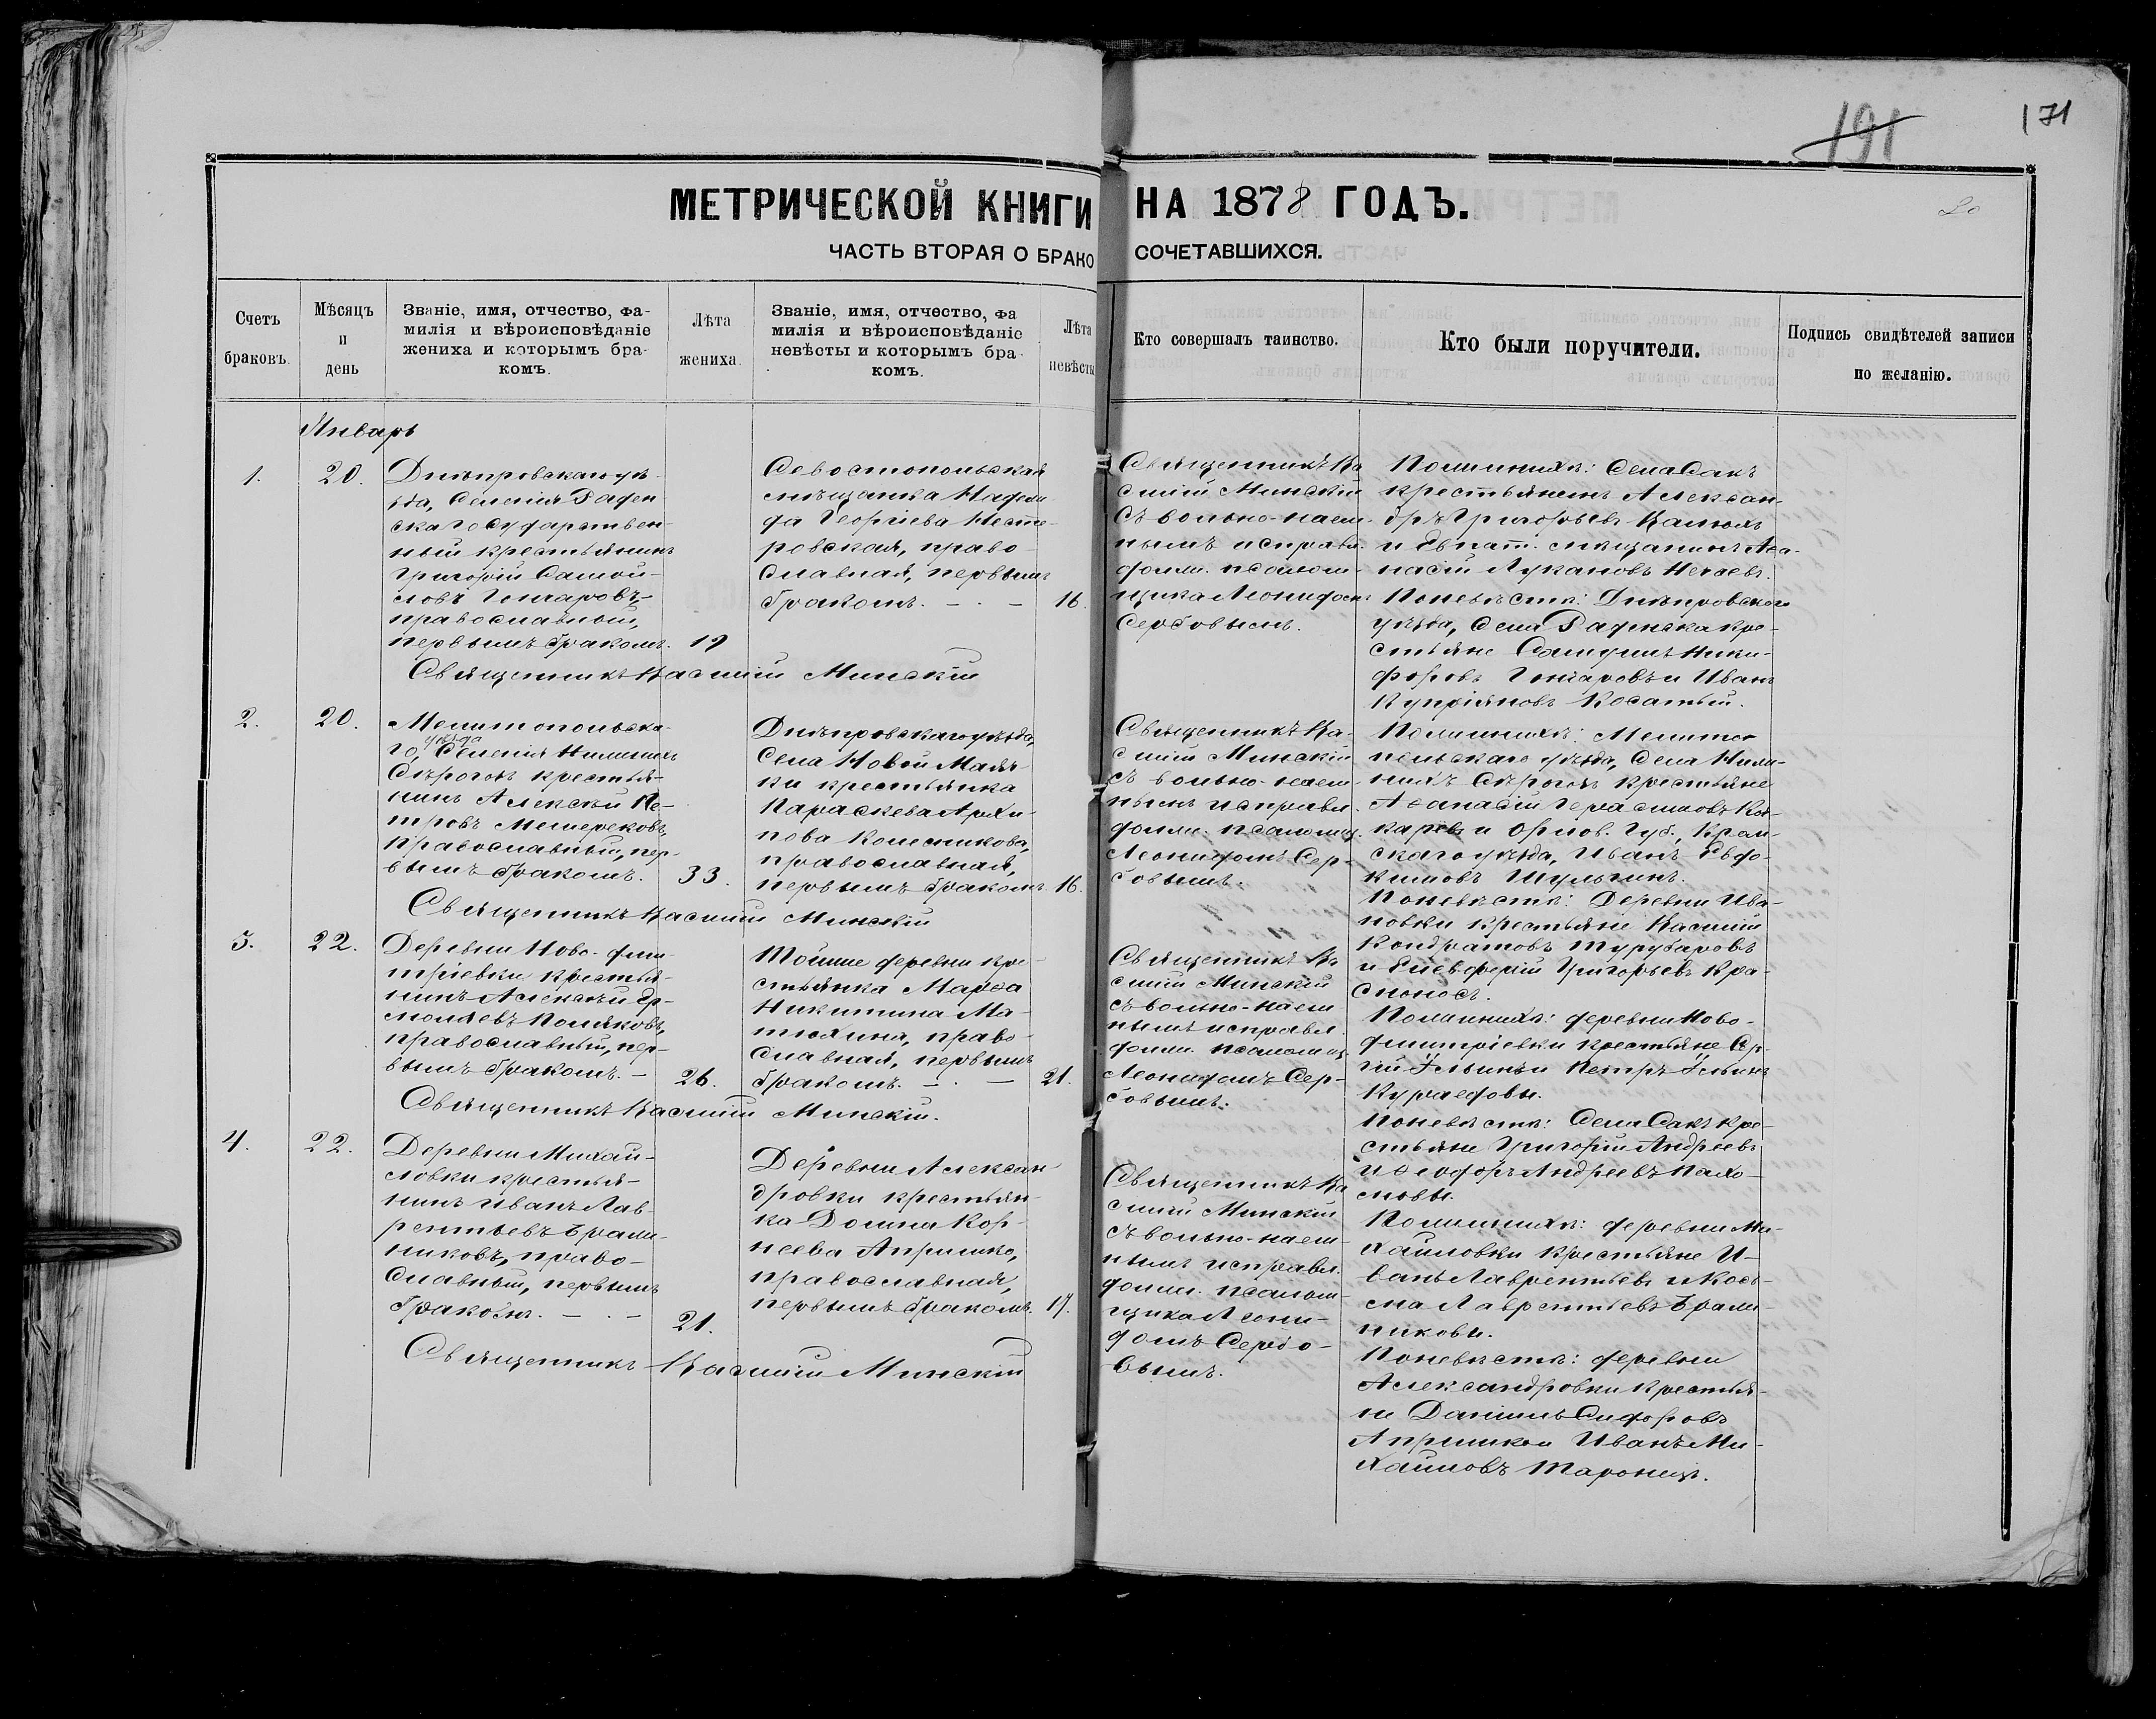 191
171
МЕТРИЧЕСКОЙ КНИГИ НА 1878 ГОДЪ.
ЧАСТЬ ВТОРАЯ О БРАКОСОЧЕТАВШИХСЯ.
Счетъ браковъ.
Мѣсяцъ и день
Званіе, имя, отчество, фа-
милія и вѣроисповѣданіе
жениха и которымъ бра-
комъ.
Лѣта жениха.
Званіе, имя, отчество, фа
милія и вѣроисповѣданіе
невѣсты и которымъ бра-
комъ.
Лѣта невѣсты
Кто совершалъ таинство.
Кто были поручители.
Подпись свидѣтелей записи
по желанію.
Январь
1.
20.
Днѣпровскаго уѣ-
зда, Селенія Раден
ска Государствен-
ный крестьянинъ
Григорій Самой-
ловъ Гончаровъ,
православный,
первымъ бракомъ.
19
Севостопольская
мѣщанка Надеж-
да Георгіева Несте-
ровская, право-
славная, первымъ
бракомъ. — . —
16.
Священникъ Ва
силій Минскій
съ вольно-наем-
нымъ исправл.
должн. псалом-
щика Леонидомъ
Сербовымъ.
По женихѣ: Села Сакъ
крестьянинъ Алексан-
дръ Григорьевъ
и Евпат. мѣщанинъ Аѳа-
насій Лукановъ Нечаевъ.
По невѣстѣ: Днѣпровскаго
уѣзда, Села Раденска кре-
стьяне Самуилъ Ники-
форовъ Гончаровъ и Иванъ
Купріяновъ Косатый.
Священникъ Василій Минскій
2.
20.
Мелитопольска-
го уѣзда Селенія Нижнихъ
Сѣрогозъ крестья-
нинъ Алексѣй Пе-
тровъ Мещерековъ,
православный, пер-
вымъ бракомъ.
33.
Днѣпровскаго уѣзда,
Села Новой Маяч-
ки крестьянка
Параскева Архи-
пова Колесникова,
православная,
первымъ бракомъ.
16.
Священникъ Ва-
силій Минскій
съ вольно-наем-
нымъ исправл.
должн. псаломщ.
Леонидомъ Сер-
бовымъ.
По женихѣ: Мелито
польскаго уѣзда, Села Ниж-
нихъ Сѣрогозъ крестьяне
Аѳанасій Герасимовъ
и Орлов. Губ., Кром-
скаго уѣзда, Иванъ Евдо-
кимовъ Шульгинъ.
По невѣстѣ: Деревни Ива-
новки крестьяне Василій
Кондратовъ Турубаровъ
и Елевферій Григорьевъ Кра-
сноносъ.
Священникъ Василій Минскій
3.
22.
Деревни Ново-дми-
тріевки крестья-
нинъ Алексѣй Ер-
молаевъ Поляковъ,
православный, пер-
вымъ бракомъ. —
26.
Тойже деревни кре-
стьянка Марѳа
Никитина Ма-
тюхина, право-
славная, первымъ
бракомъ. — . —
21.
Священникъ Ва
силій Минскій
съ вольно-наем
нымъ исправл.
должн. псаломщ.
Леонидомъ Сер-
бовымъ.
По женихѣ: деревни Ново-
дмитріевки крестьяне Сер-
гій Ильинъ и Петръ Ильинъ
Кураедовы.
По невѣстѣ: Села Сакъ кре-
стьяне Григорій Андреевъ
и Ѳеодоръ Андреевъ Пахо-
мовы.
Священникъ Василій Минскій.
4.
22.
Деревни Михай-
ловки крестья-
нинъ Иванъ Лав-
рентьевъ Брали-
никовъ, право-
славный, первымъ
бракомъ. — . —
21.
Деревни Алексан
дровки крестьян-
ка Домна Кор-
неева Апришко,
православная,
первымъ бракомъ.
17.
Священникъ Ва
силій Минскій
съ вольно-наем-
нымъ исправл.
должн. псалом-
щика Леони-
домъ Сербо-
вымъ.
По женихѣ: деревни Ми-
хайловки крестьяне И-
ванъ Лаврентьевъ и Кось-
ма Лаврентьевъ Брали-
никовы.
По невѣстѣ: деревни
Александровки крестья-
не Даніилъ Сидоровъ
Апришко и Иванъ Ми-
хайловъ Таронецъ.
Священникъ Василій Минскій